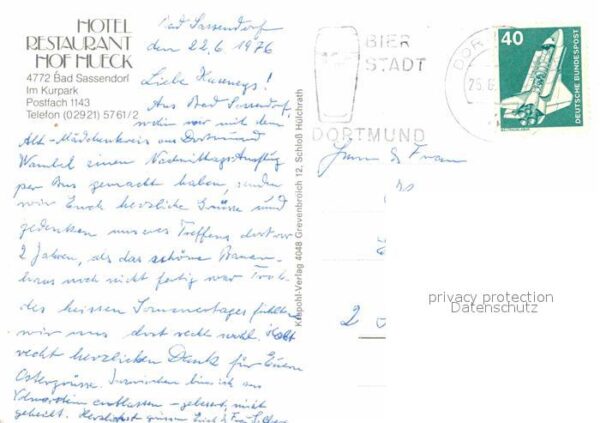 HOTEL
RESTAURANT
HOF HUECK
4772 Bad Sassendorf
Im Kurpark
Postfach 1143
Telefon (02921) 5761/2
Bad Sassendorf
den 22.6.1976
Liebe
Aus Bad Sassendorf,
wohin wir mit dem
Alt-Mädchenkreis aus Dortmund
Wambel einen Nachmittags-Ausflug
per Bus gemacht haben, senden
wir Euch herzliche Grüsse und
gedenken unseres Treffens dort vor
2 Jahren, als das schöne Bauern-
haus noch nicht fertig war. Trotz
des heissen Sommertages fühlten
wir uns dort recht wohl. Habt
recht herzlichen Dank für Eure
Ostergrüsse. Inzwischen bin ich aus
entlassen - gebessert, nicht
geheilt. Herzlichst grüssen Euch
Krapohl-Verlag 4048 Grevenbroich 12, Schloß Hülchrath
BIER
STADT
DORTMUND
DOR
25.6
40
DEUTSCHE BUNDESPOST
Herrn & Frau
2
privacy protection
Datenschutz